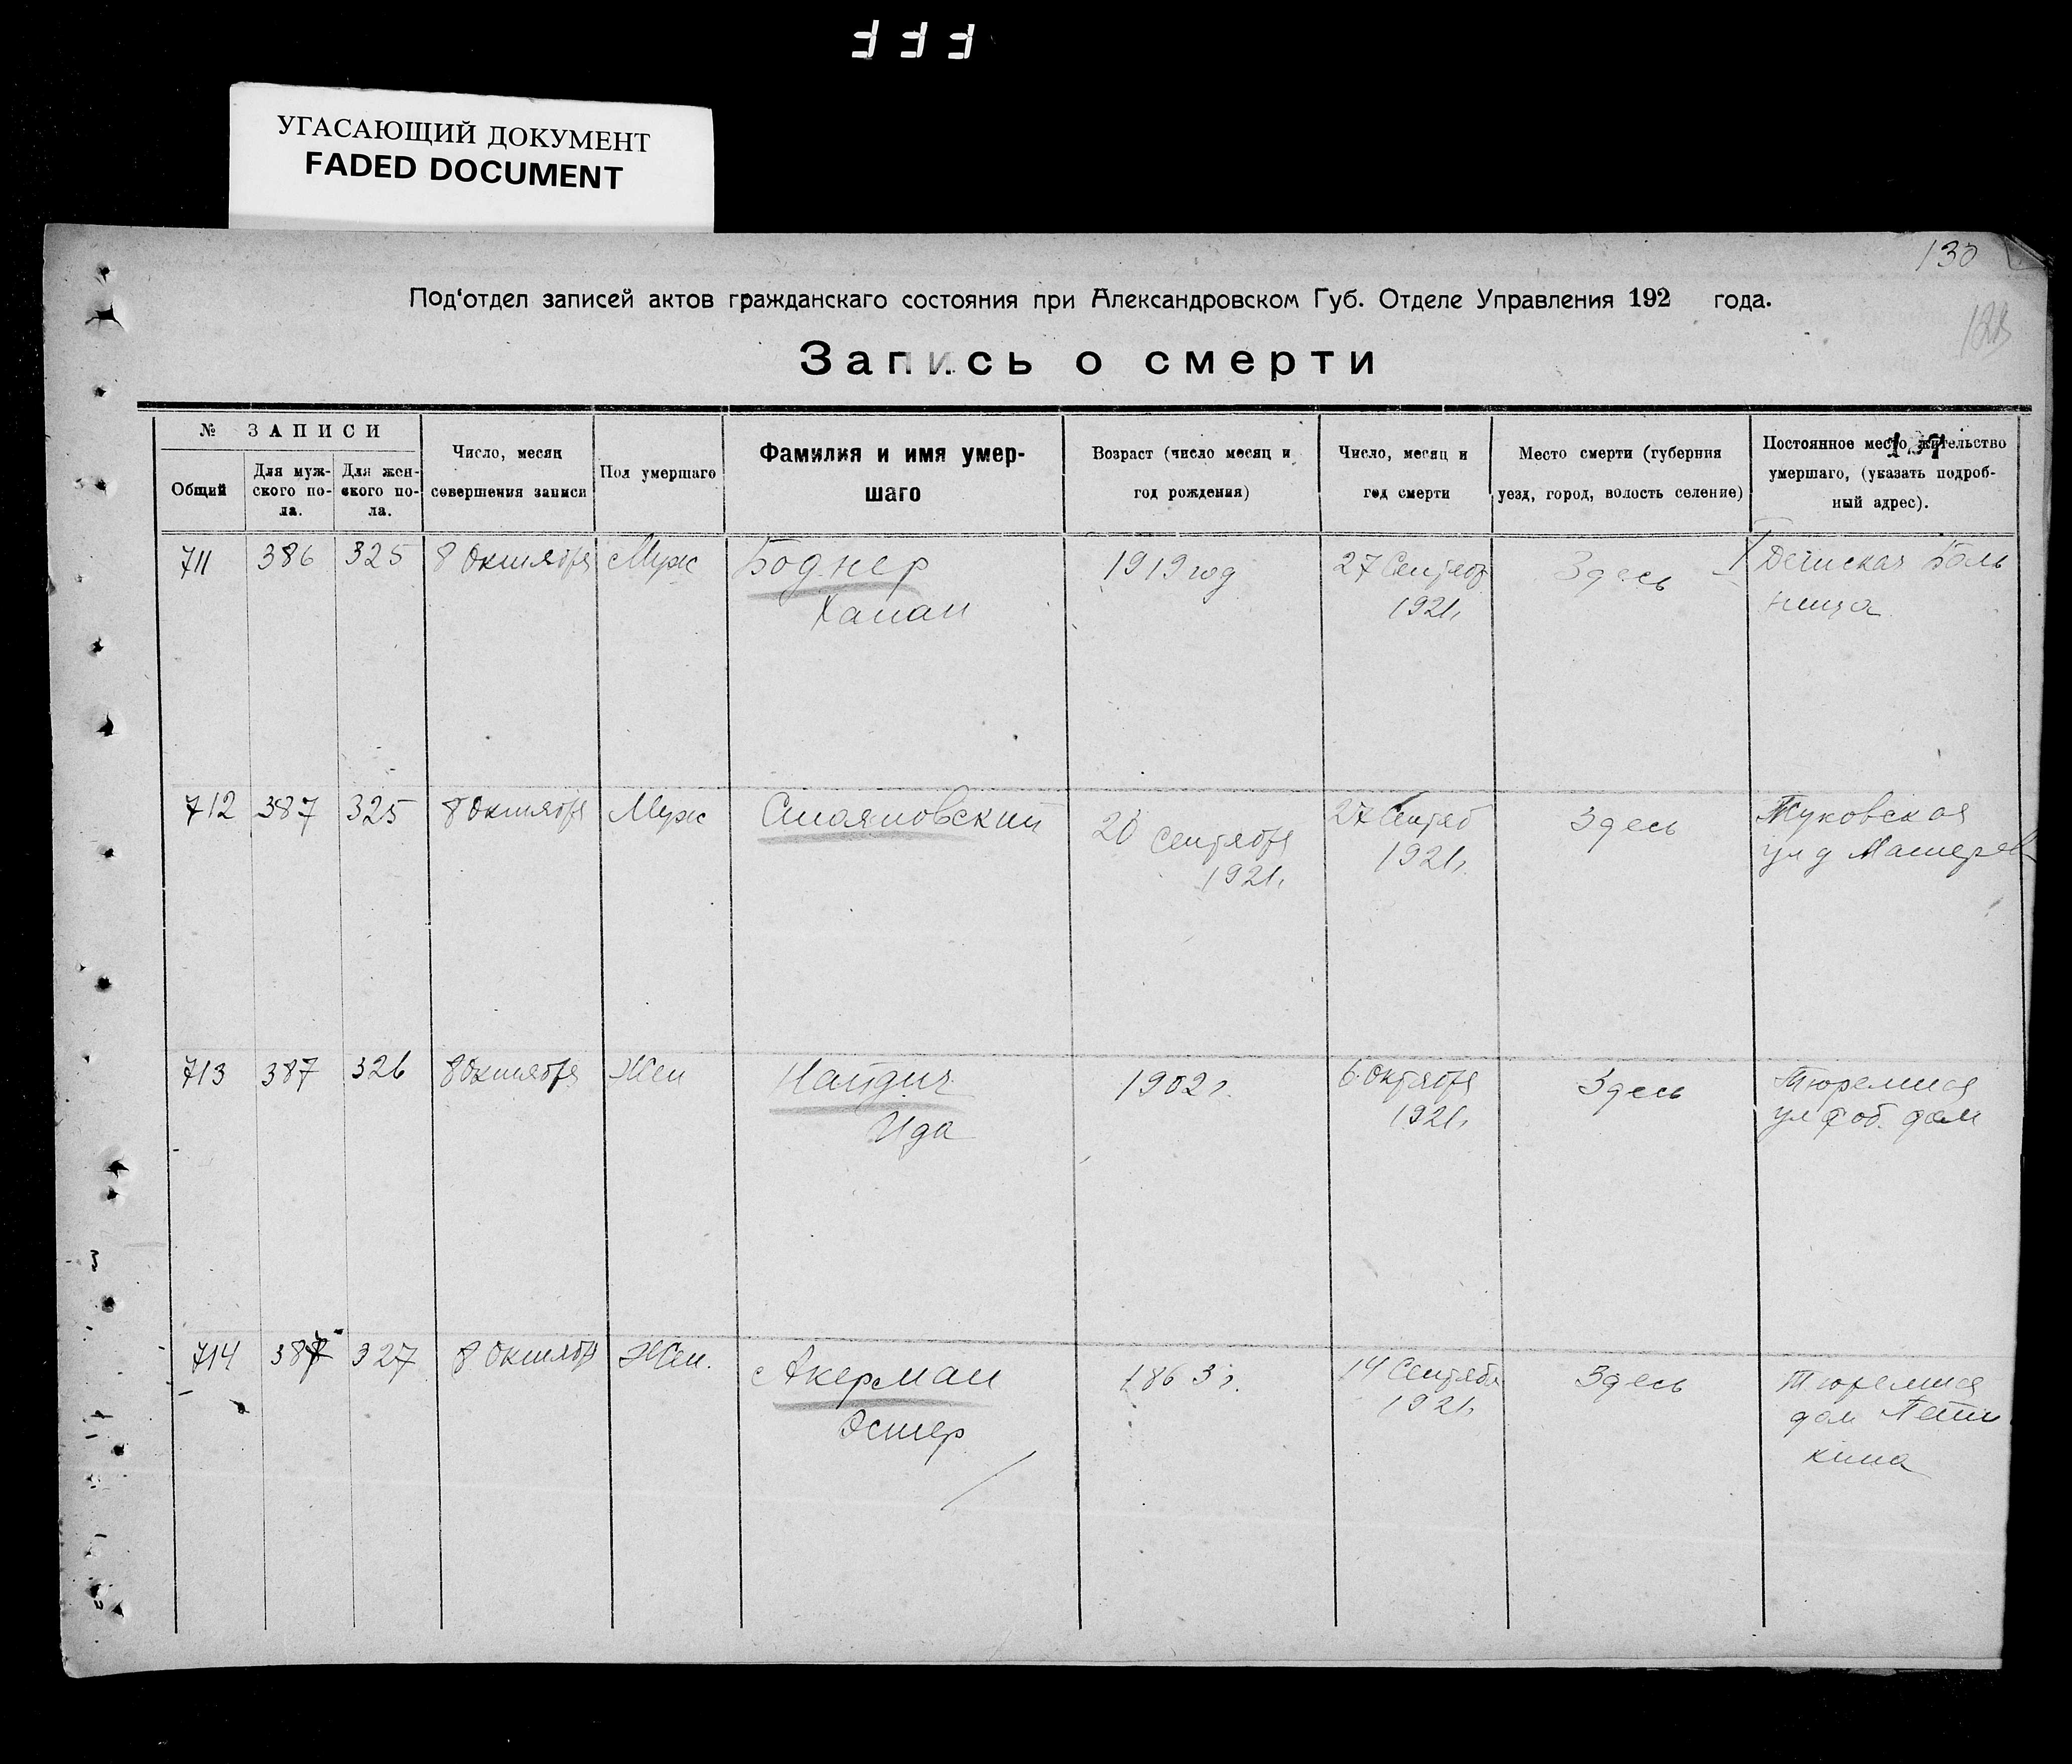 УГАСАЮЩИЙ ДОКУМЕНТ
FADED DOCUMENT
130
Под‘отдел записей актов гражданскаго состояния при Александровском Губ. Отделе Управления 192 года.
Запись о смерти
№ ЗАПИСИ
Общий
Для муж-
ского по-
ла.
Для жен-
ского по-
ла.
Число, месяц
совершения записи
Пол умершаго
Фамилия и имя умер-
шаго
Возраст (число месяц и
год рождения)
Число, месяц и
год смерти
Место смерти (губерния
уезд, город, волость селение)
Постоянное место жительство
умершаго, (указать подроб-
ный адрес).
711 386 325 8 Октября Муж Боднер 1919 год 27 Сентяб Здесь Детская Боль
Хаман 1921г ница
712 387 325 8 Октября Муж 20 27 Сентяб Здесь
Сентября 1921г. ул д
1921г.
713 387 326 8 Октября Жен Найдич 1902г. 6 Октября Здесь Тюремная
Ида 1921г. ул об. дом
714 387 327 8 Октяб Жен. Акерман 1863г. 14 Сентябр Здесь Тюремная
Эстер 1921г. дом
кина